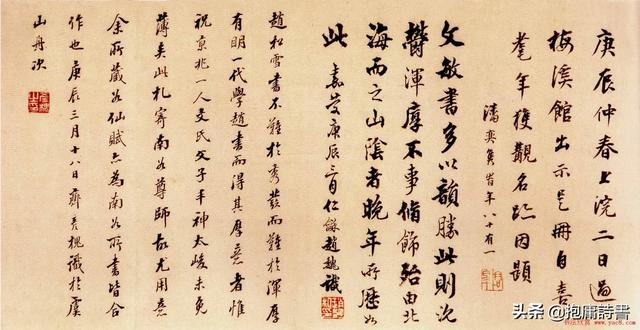 庚辰仲春上浣二日過
梅溪館出示是冊自喜
耄年獲觀名跡因題
潘奕雋時年八十有一
文敏書多以韻勝此則沈
鬱渾厚不事脩飾殆由北
海而之山陰者晚年所歷如
此 嘉慶庚辰二月仁餘趙魏識
趙松雪書不難於秀發而難於渾厚
有明一代學趙書而得其厚意者惟
祝京兆一人文氏父子丰神太峻未免
薄矣此札寄南谷尊師故尤用意
余所藏谷仙賦亦為南谷所書皆合
作也庚辰三月十八日齊彥槐識於虞
山舟次
头条 @抱庸詩書